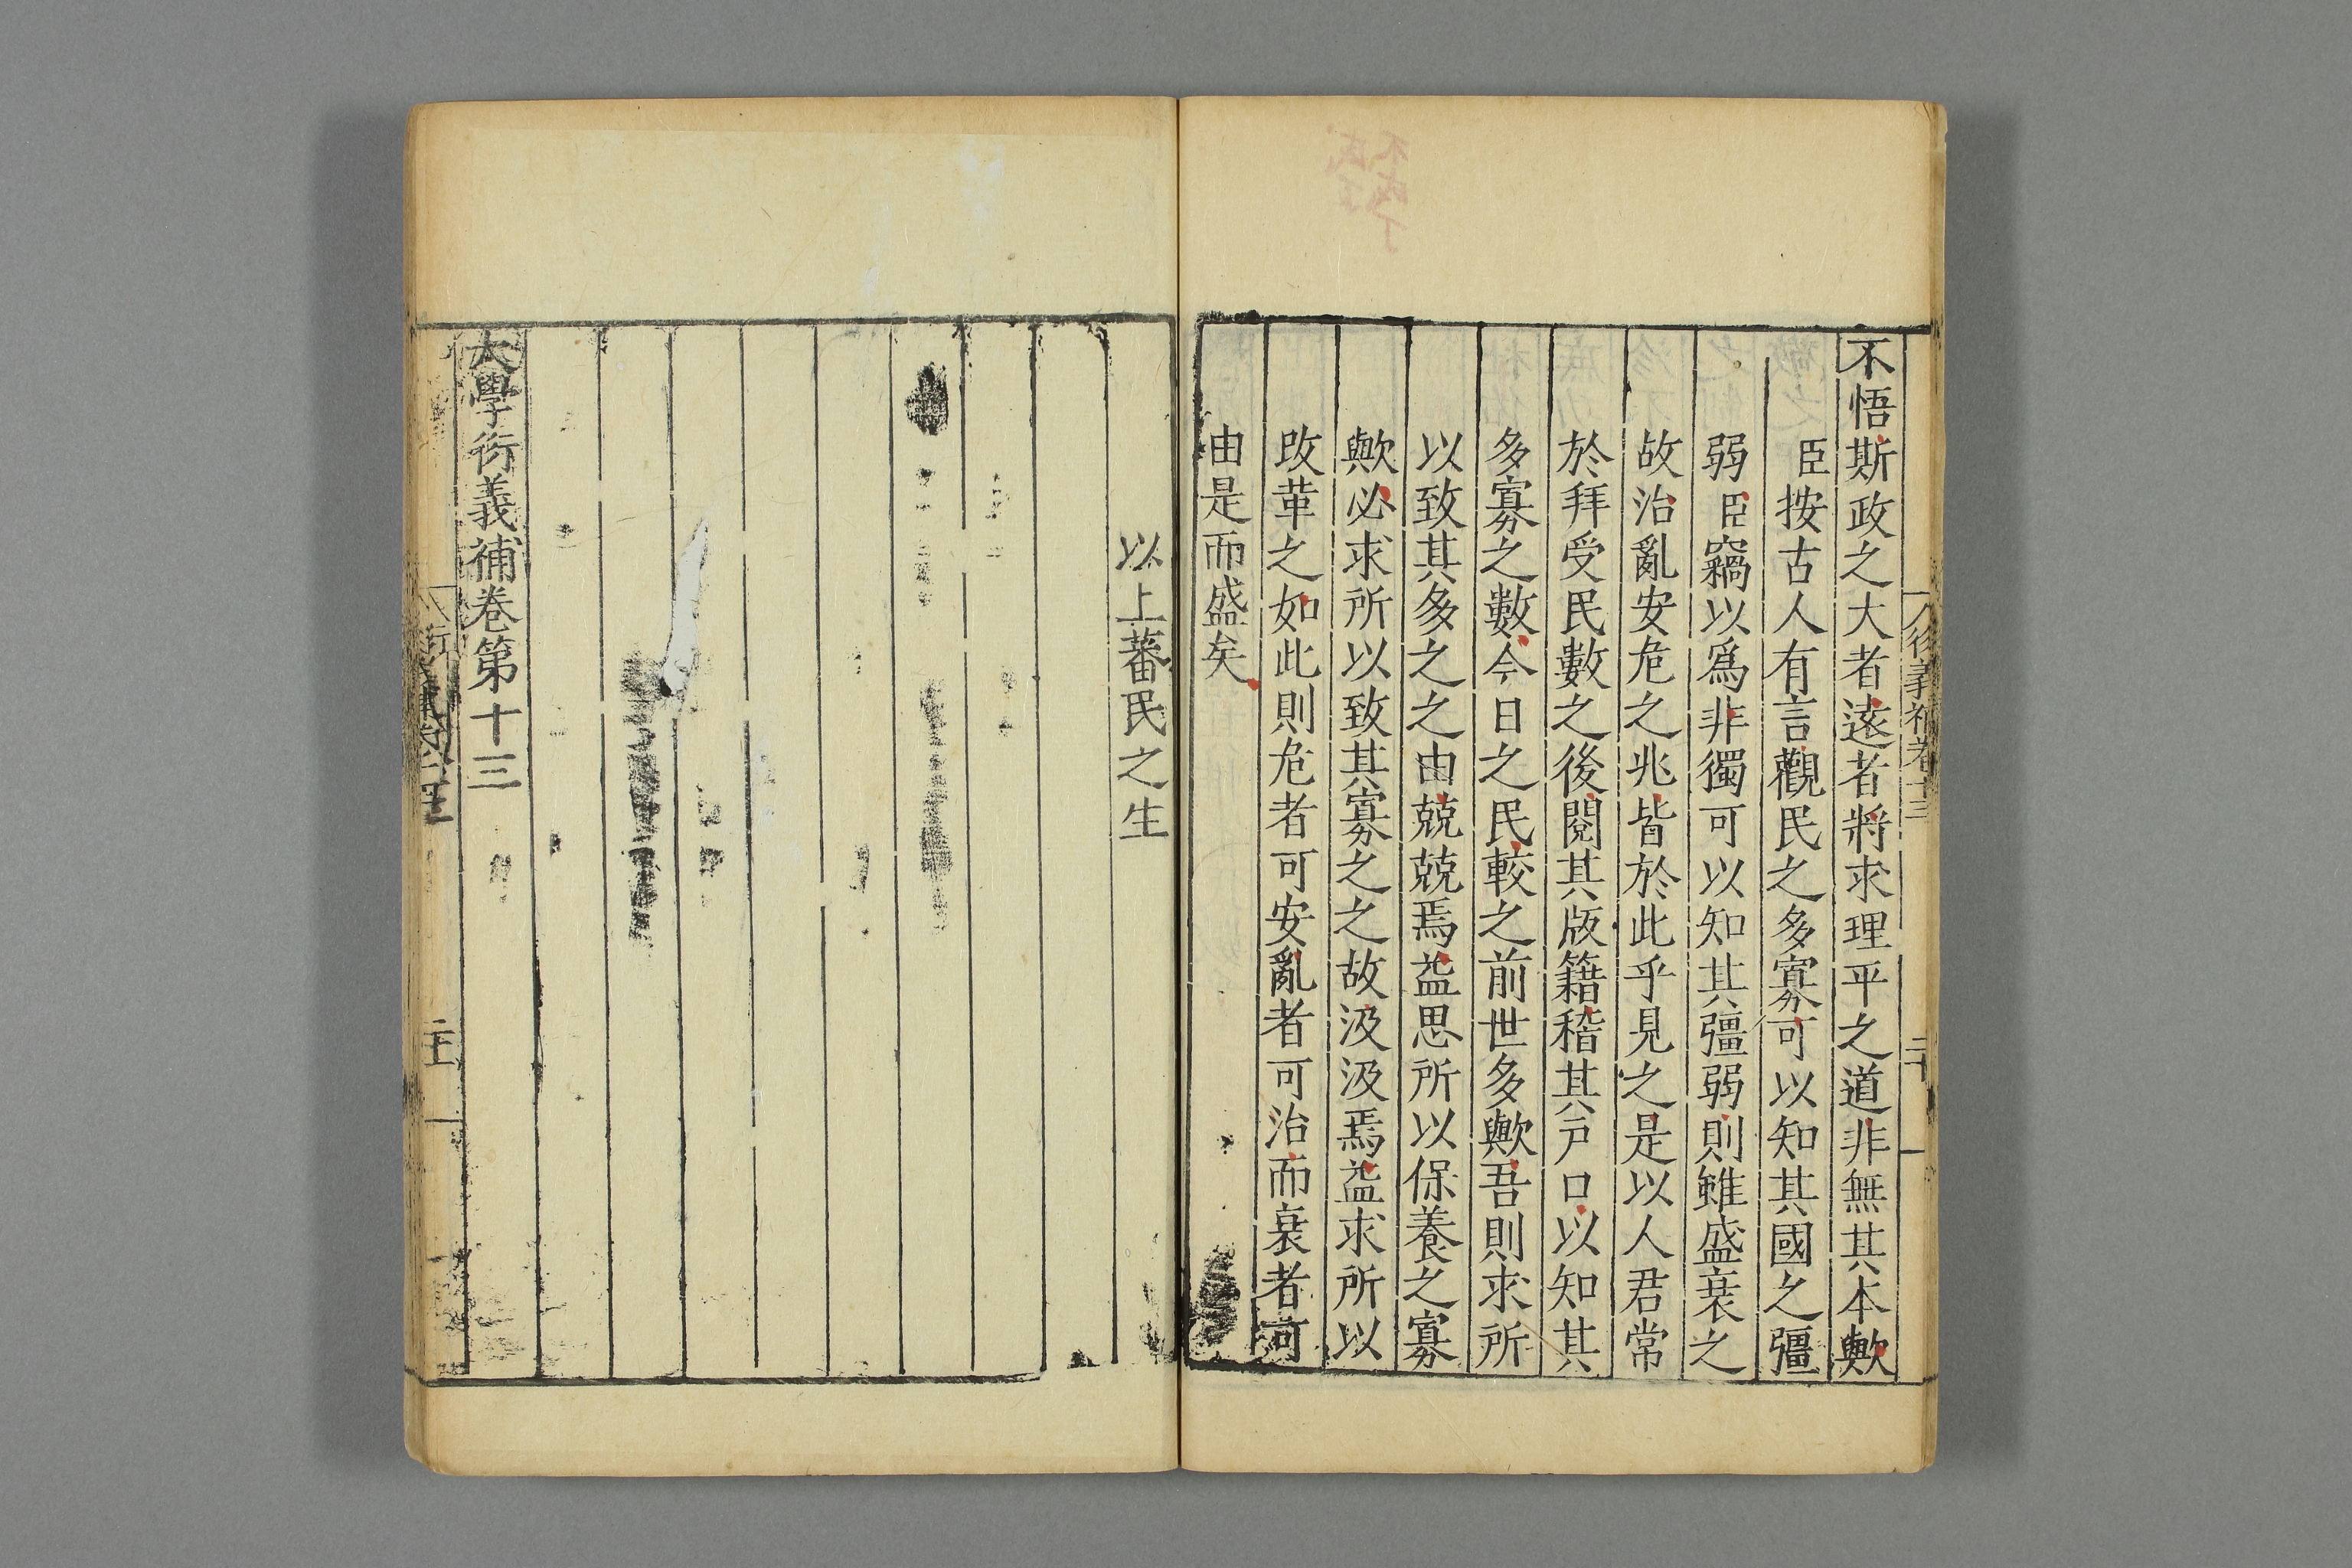 不悟斯政之大者遠者將求理平之道非無其本歟
臣按古人有言觀民之多寡可以知其國之彊
弱臣竊以爲非獨可以知其彊弱則雖盛衰之
故治亂安危之兆皆於此乎見之是以人君常
於拜受民數之後閱其版籍稽其戶口以知其
多寡之數今日之民較之前世多歟吾則求所
以致其多之之由兢兢焉益思所以保養之寡
歟必求所以致其寡之之故汲汲焉益求所以
改革之如此則危者可安亂者可治而衰者可
由是而盛矣
以上蕃民之生
大學衍義補卷第十三